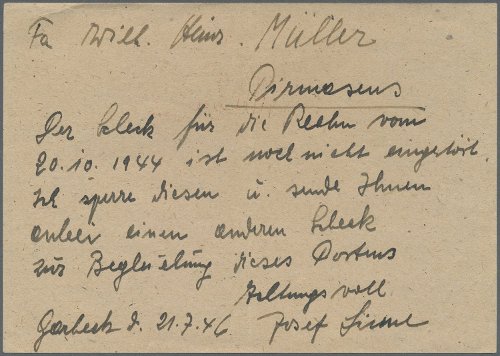 Fa Wilh. Heinr. Müller
Pirmasens
Der Scheck für die Rechn vom
20.10.1944 ist noch nicht eingelöst.
Ich sperre diesen u. sende Ihnen
anbei einen anderen Scheck
zur Begleichung dieses Postens
Achtungsvoll
Garbeck d. 21.7.46 Josef